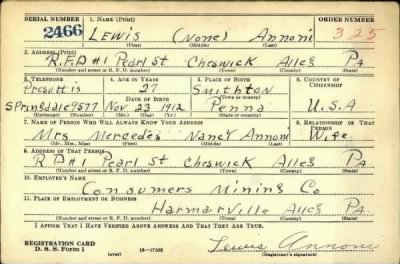 SERIAL NUMBER 1. NAME (Print) ORDER NUMBER
2466 LEWIS (None) Annoni 325
(First) (Middle) (Last)
2. ADDRESS (Print)
R.F.D #1 Pearl St Cheswick Alleg Pa
(Number and street or R. F. D. number) (Town) (County) (State)
3. TELEPHONE 4. AGE IN YEARS 5. PLACE OF BIRTH 6. COUNTRY OF CITIZENSHIP
27 Smithton
DATE OF BIRTH (Town or county)
Springdale 9577 Nov 23 1912 Penna U.S.A
(Exchange) (Number) (Mo.) (Day) (Yr.) (State or country)
7. NAME OF PERSON WHO WILL ALWAYS KNOW YOUR ADDRESS 8. RELATIONSHIP OF THAT PERSON
Mrs Mercedes Nancy Annoni Wife
(Mr., Mrs., Miss) (First) (Middle) (Last)
9. ADDRESS OF THAT PERSON
R D #1 Pearl St Cheswick Alleg Pa
(Number and street or R. F. D. number) (Town) (County) (State)
10. EMPLOYER'S NAME
Consumers Mining Co
11. PLACE OF EMPLOYMENT OR BUSINESS
Harmarville Alleg Pa
(Number and street or R. F. D. number) (Town) (County) (State)
I AFFIRM THAT I HAVE VERIFIED ABOVE ANSWERS AND THAT THEY ARE TRUE.
REGISTRATION CARD
D. S. S. Form 1 (over) 16—17105 Lewis Annoni
(Registrant's signature)